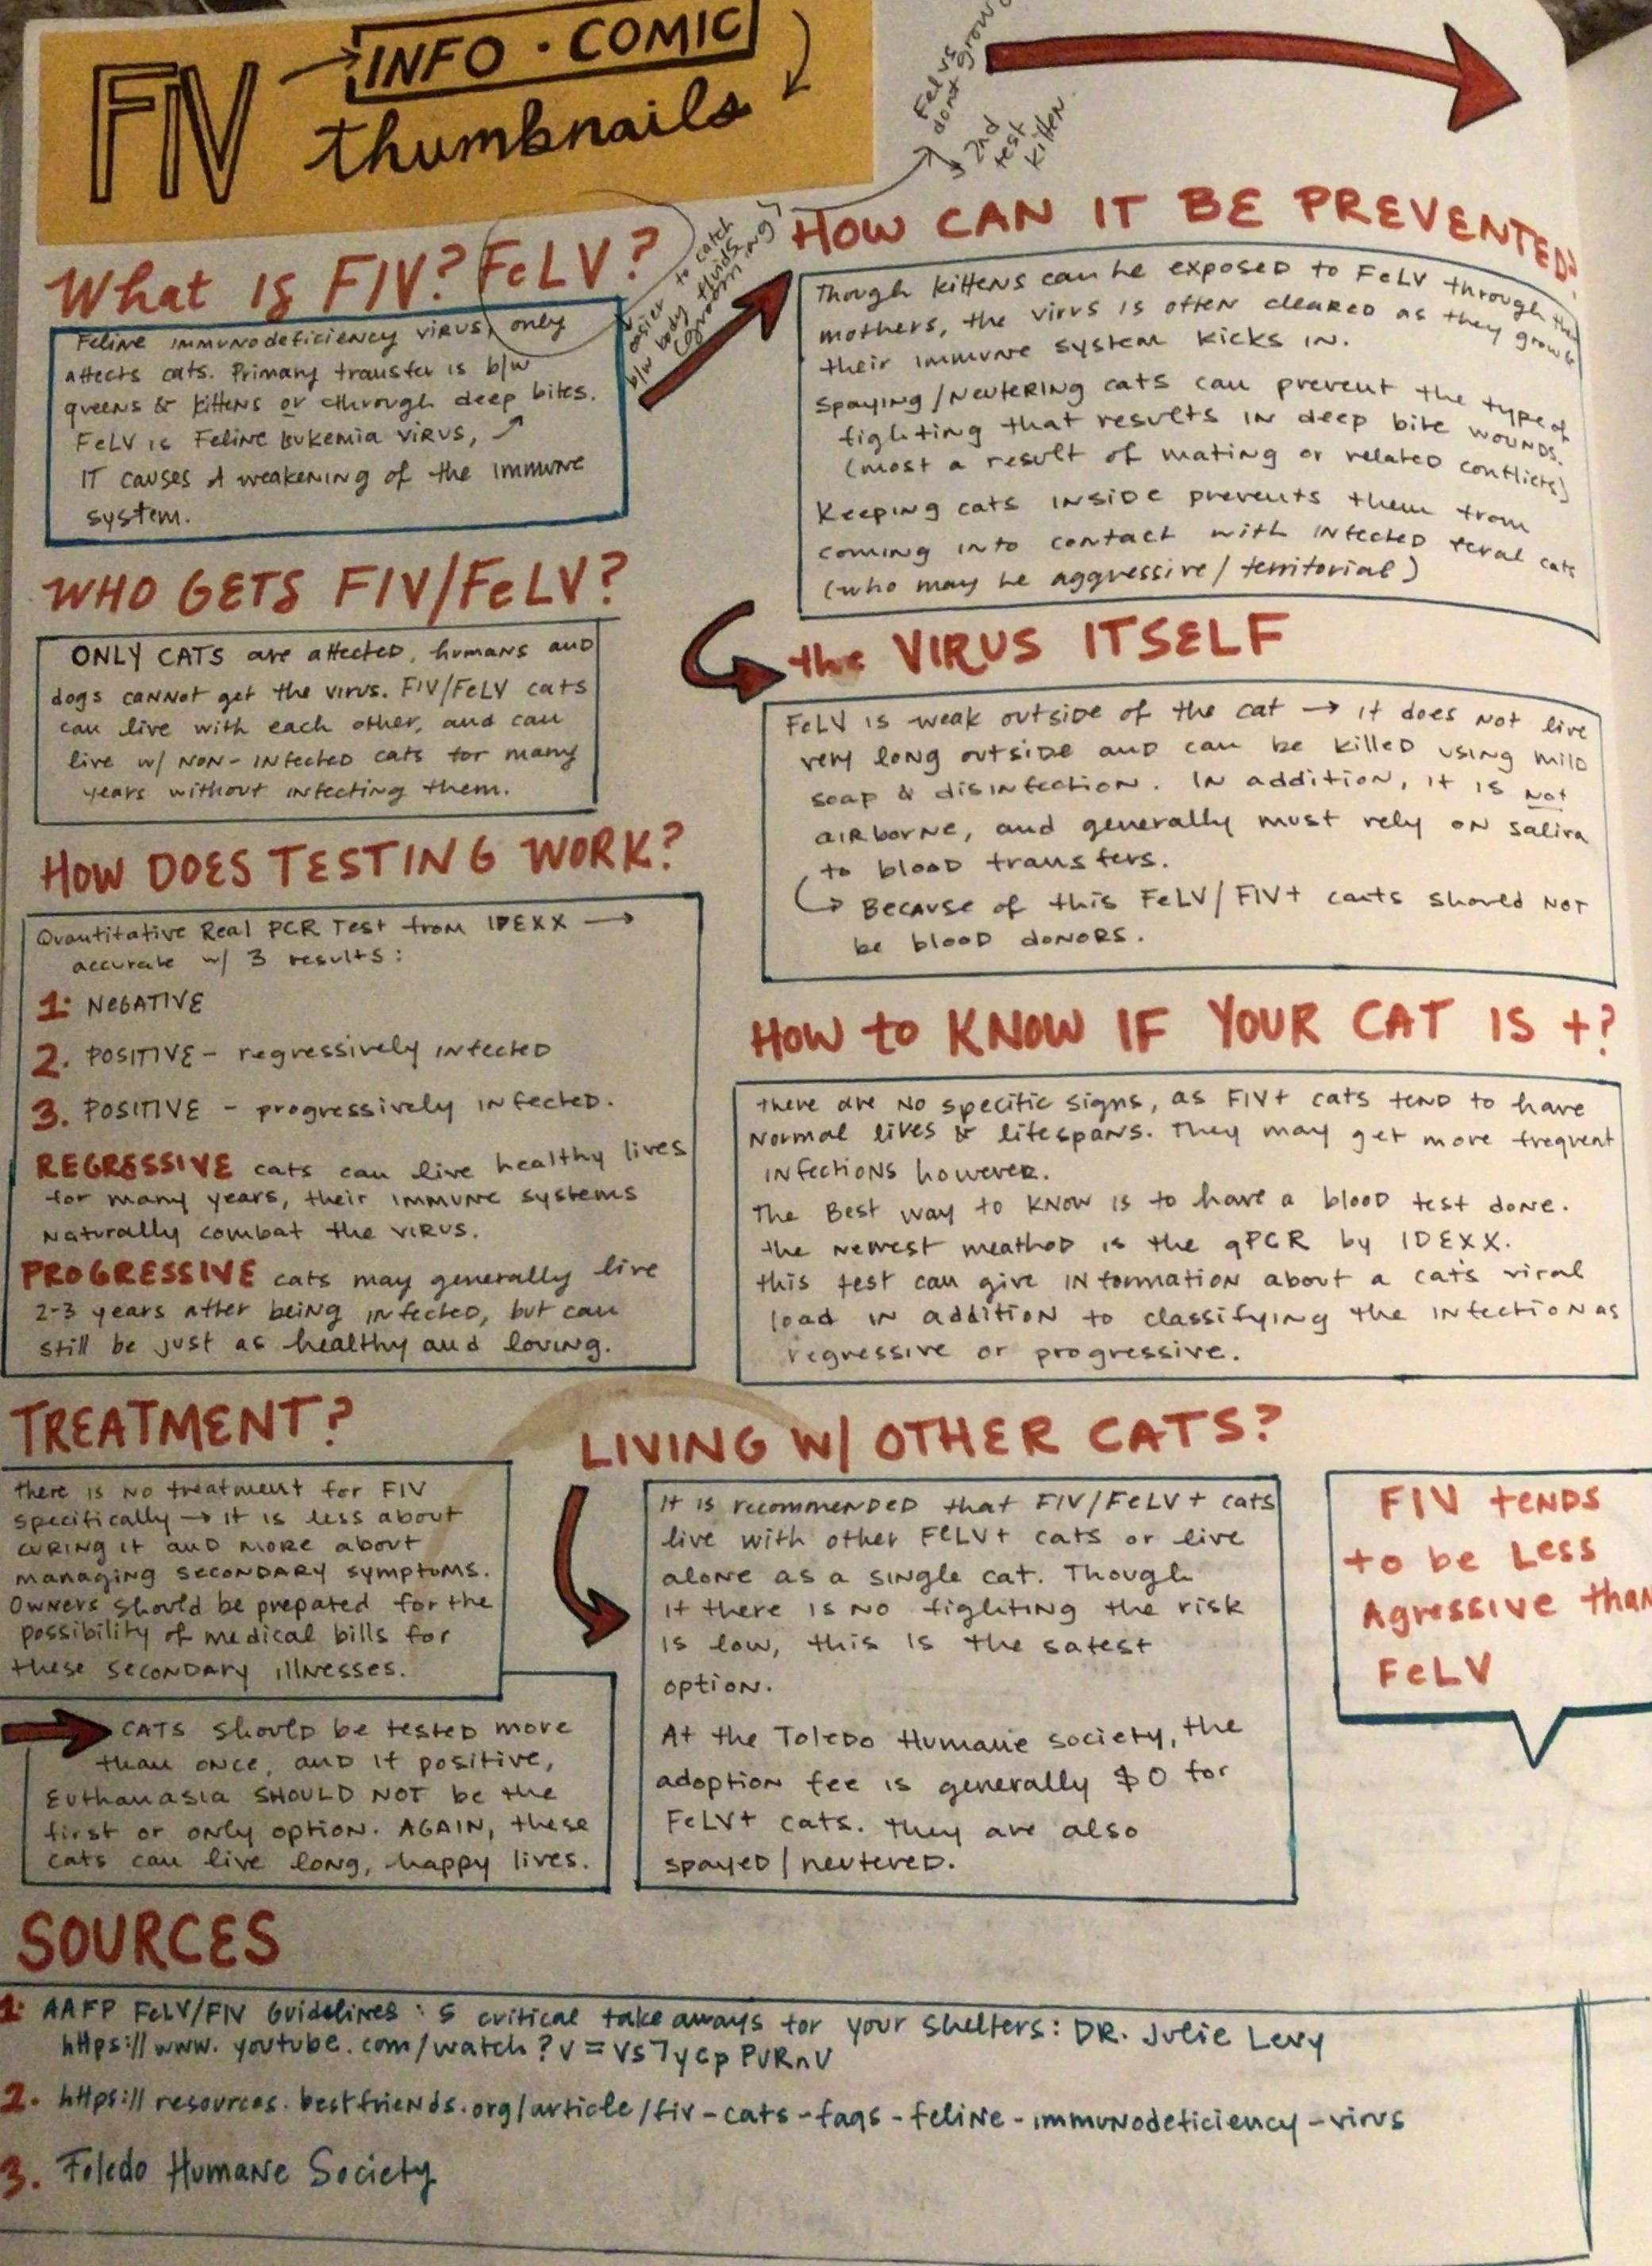 FIV → INFO · COMIC
thumbnails
FeLVs
dont grow
2nd
test
kitten.
easier to catch
b/w body fluids
(grooming)
What is FIV? FeLV?
Feline immunodeficiency virus, only
affects cats. Primary transfer is b/w
queens & kittens or through deep bites.
FeLV is Feline Lukemia virus,
IT causes a weakening of the immune
system.
WHO GETS FIV/FeLV?
ONLY CATS are affected, humans and
dogs cannot get the virus. FIV/FeLV cats
can live with each other, and can
live w/ non-infected cats for many
years without infecting them.
HOW DOES TESTING WORK?
Quantitative Real PCR Test from IDEXX →
accurate w/ 3 results:
1. NEGATIVE
2. POSITIVE - regressively infected
3. POSITIVE - progressively infected.
REGRESSIVE cats can live healthy lives
for many years, their immune systems
naturally combat the virus.
PROGRESSIVE cats may generally live
2-3 years after being infected, but can
still be just as healthy and loving.
TREATMENT?
there is no treatment for FIV
specifically → it is less about
curing it and more about
managing secondary symptoms.
Owners should be prepated for the
possibility of medical bills for
these secondary illnesses.
CATS should be tested more
than once, and if positive,
Euthanasia SHOULD NOT be the
first or only option. AGAIN, these
cats can live long, happy lives.
HOW CAN IT BE PREVENTED?
Though kittens can be exposed to FeLV through their
mothers, the virus is often cleared as they grow &
their immune system kicks in.
Spaying/neutering cats can prevent the type of
fighting that results in deep bite wounds.
(most a result of mating or related conflicts)
Keeping cats inside prevents them from
coming into contact with infected feral cats
(who may be aggressive/territorial)
the VIRUS ITSELF
FeLV is weak outside of the cat → it does not live
very long outside and can be killed using mild
soap & disinfection. In addition, it is not
airborne, and generally must rely on saliva
to blood transfers.
Because of this FeLV/FIV+ cats should not
be blood donors.
HOW to KNOW IF YOUR CAT IS +?
there are no specific signs, as FIV+ cats tend to have
normal lives & lifespans. They may get more frequent
infections however.
The Best way to know is to have a blood test done.
the newest meathod is the qPCR by IDEXX.
this test can give information about a cat's viral
load in addition to classifying the infection as
regressive or progressive.
LIVING W/ OTHER CATS?
It is recommended that FIV/FeLV+ cats
live with other FeLV+ cats or live
alone as a single cat. Though
if there is no fighting the risk
is low, this is the safest
option.
At the Toledo Humane society, the
adoption fee is generally $0 for
FeLV+ cats. they are also
spayed/neutered.
FIV tends
to be Less
Agressive than
FeLV
SOURCES
1. AAFP FeLV/FIV Guidelines: 5 critical take aways for your shelters: DR. Julie Levy
https://www.youtube.com/watch?v=Vs7ycpPURnU
2. https://resources.bestfriends.org/article/fiv-cats-faqs-feline-immunodeficiency-virus
3. Toledo Humane Society